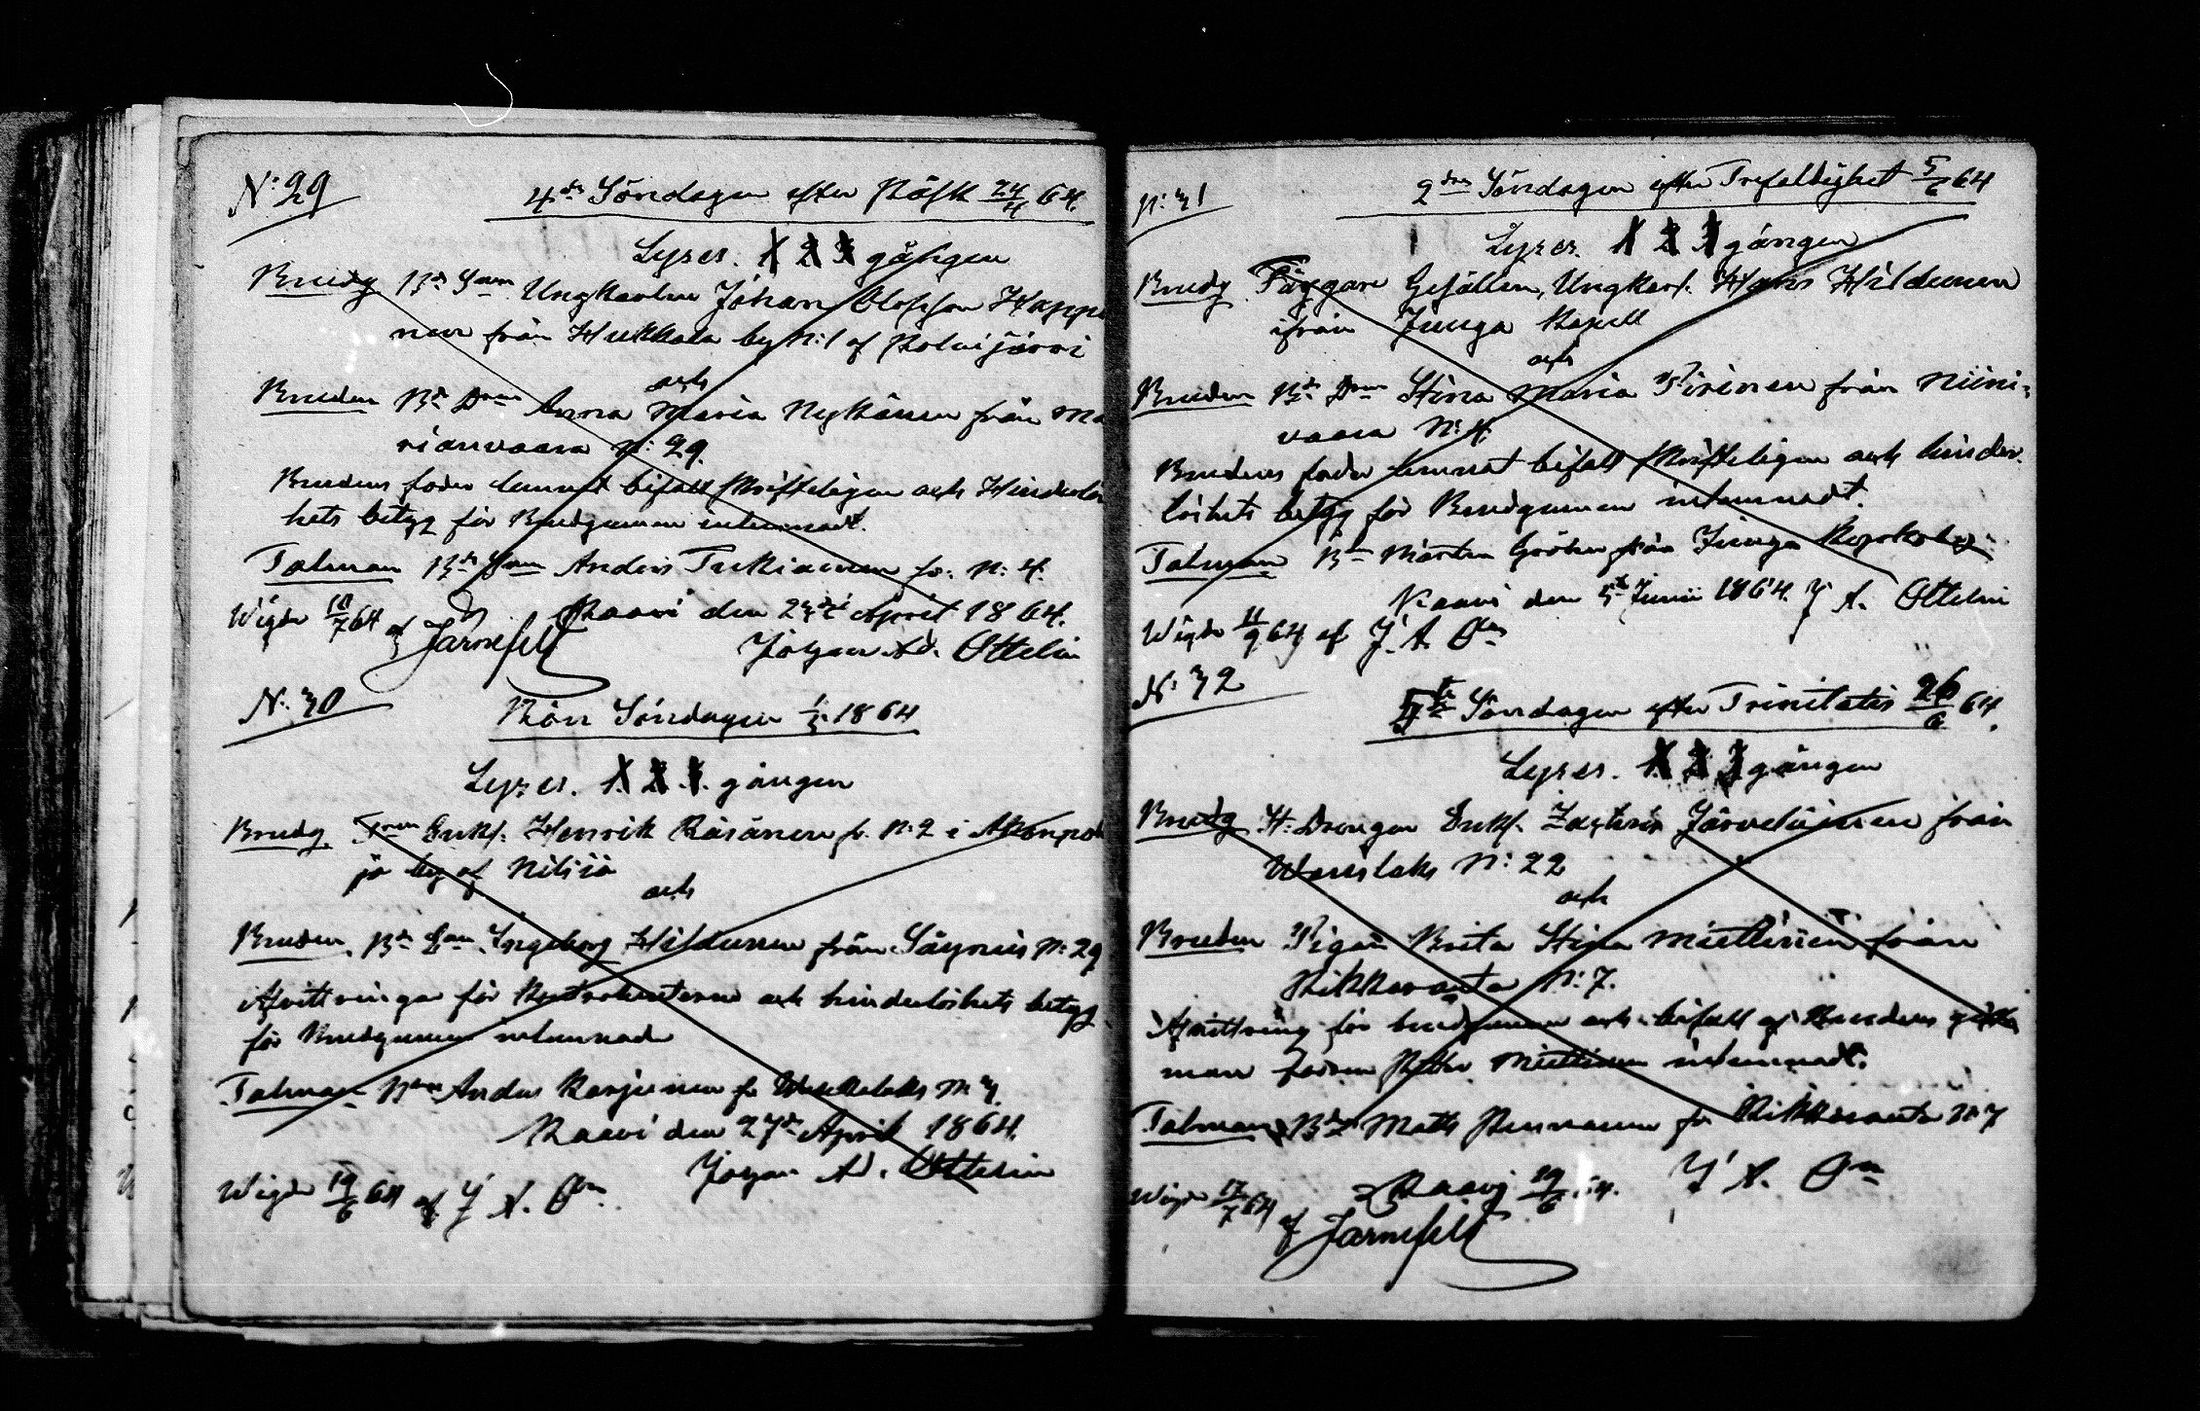 N: 29
4de Söndagen efter Påsk 24/4 64.
Lyses. 1 2 3 gången
Brudg Bd Son Ungkarlen Johan Olofsson Happo
nen från Hukkala by N:1 af Polvijärvi
och
Bruden Bd Dr Anna Maria Nykänen från Ma
rianvaara N: 29.
Brudens fader lemnat bifall skriftligen och Hinderlös
hets betyg för Brudgummen inlemnadt.
Talman Bd Son Anders Tukiainen fr. N: 4.
Kaavi den 23 April 1864.
Wigde 10/7 64 af Järnefelt
Johan Ad. Ottelin
N: 30
Bön Söndagen 1/5 1864
Lyses. 1. 2. 3. gången
Brudg. Enkl. Henrik Räsänen fr. N: 2 i
by af Nilsiä
och
Bruden Bd Ingeborg Hildunen från Säyneis N: 29
Afvittringar för Kontrahenterne och hinderlöshets betyg
för Brudgummen inlemnade
Talman Anders Karjunen fr N:
Kaavi den 27de April 1864.
Johan Ad. Ottelin
Wigde 19/6 64 af J. A. On
N: 31
2dra Söndagen efter Trefaldighet 5/6 64
Lyses. 1 2 3 gången
Brudg Gesällen, Ungkarl. Hans Hildunen
ifrån Juuga Kapell
och
Bruden Bd Dr Stina Maria Piirinen från Niini=
vaara N: 4.
Brudens fader lemnat bifall skriftligen och hinder
löshets betyg för Brudgummen inlemnadt.
Talman Bn Mårten från Juuga Kyrkoby
Kaavi den 5te Junii 1864. J A. Ottelin
Wigde 11/9 64 af J. A. On
N: 32
Söndagen efter Trinitatis 26/6 64.
Lyses. 1 2 3 gången
Brudg Drengen Enkl. Zachris Järveläinen från
N: 22
och
Bruden Pigan Brita Stina Miettinen från
Rikkaranta N: 7.
Afvittring för brudgummen och bifall af Brudens
man Miettinen inlemnadt.
Talman Bd Matts fr Rikkaranta N 7
Kaavi 64. J A. On
Wigde 17/7 64 af Järnefelt